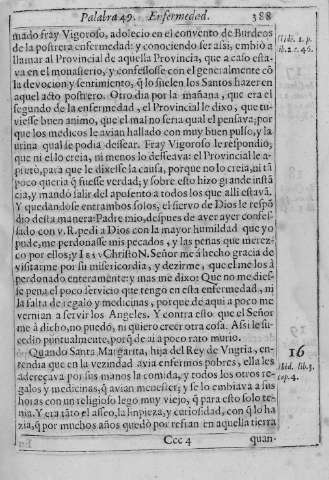 Palabra 49. Enfermedad. 388
mado fray Vigoroso, adolecio en el convento de Burdeos
de la postrera enfermedad: y conociendo ser assi, embiò a
llamar al Provincial de aquella Provincia, que a caso esta-
va en el monasterio, y confessose con el generalmente cō
la devocion y sentimiento, q̃ lo suelen los Santos hazer en
aquel acto postrero. Otro dia por la mañana, que era el
segundo de la enfermedad, el Provincial le dixo, que tu-
viesse buen animo, que el mal no seria qual el pensava; por
que los medicos le avian hallado con muy buen pulso, y la
urina qual se podia dessear. Fray Vigoroso le respondiò,
que ni el lo creia, ni menos lo desseava: el Provincial le a-
pretò, para que le dixesse la causa, porque no lo creia, ni tã
poco queria q̃ fuesse verdad; y sobre esto hizo grande instã
cia, y mandò salir del aposento a todos los que alli estavã.
Y quedandose entrambos solos, el siervo de Dios le respõ
diò desta manera: Padre mio, despues de aver ayer confes-
sado con v. R. pedi a Dios con la mayor humildad que yo
pude, me perdonasse mis pecados, y las penas que merez-
co por ellos, y Iesu Christo N. Señor me à hecho gracia de
visitarme por su misericordia, y dezirme, que el me los à
perdonado enteramente: y mas me dixo: Que no me dies-
se pena el poco servicio que tengo en esta enfermedad, ni
la falta de regalo y medicinas, porque de aqui a poco me
vernian a servir los Angeles. Y contra esto que el Señor
me à dicho, no puedo, ni quiero creer otra cosa. Assi le su-
cedio puntualmente, porq̃ de ai a poco rato murio.
Quando Santa Margarita, hija del Rey de Vngria, en-
tendia que en la vezindad avia enfermos pobres, ella les
adereçava por sus manos la comida, y todos los otros re-
galos y medicinas, q̃ avian menester; y se lo embiava a sus
horas con un religioso lego muy viejo, q̃ para esto solo te-
nia. Y era tãto el asseo, la limpieza, y curiosidad, con q̃ lo ha
zia, q̃ por muchos años quedò por refran en aquella tierra
Ccc 4 quan-
Ibid. 1. p.
lib. 2. c. 46.
16
Ibid. lib. 3.
cap. 4.